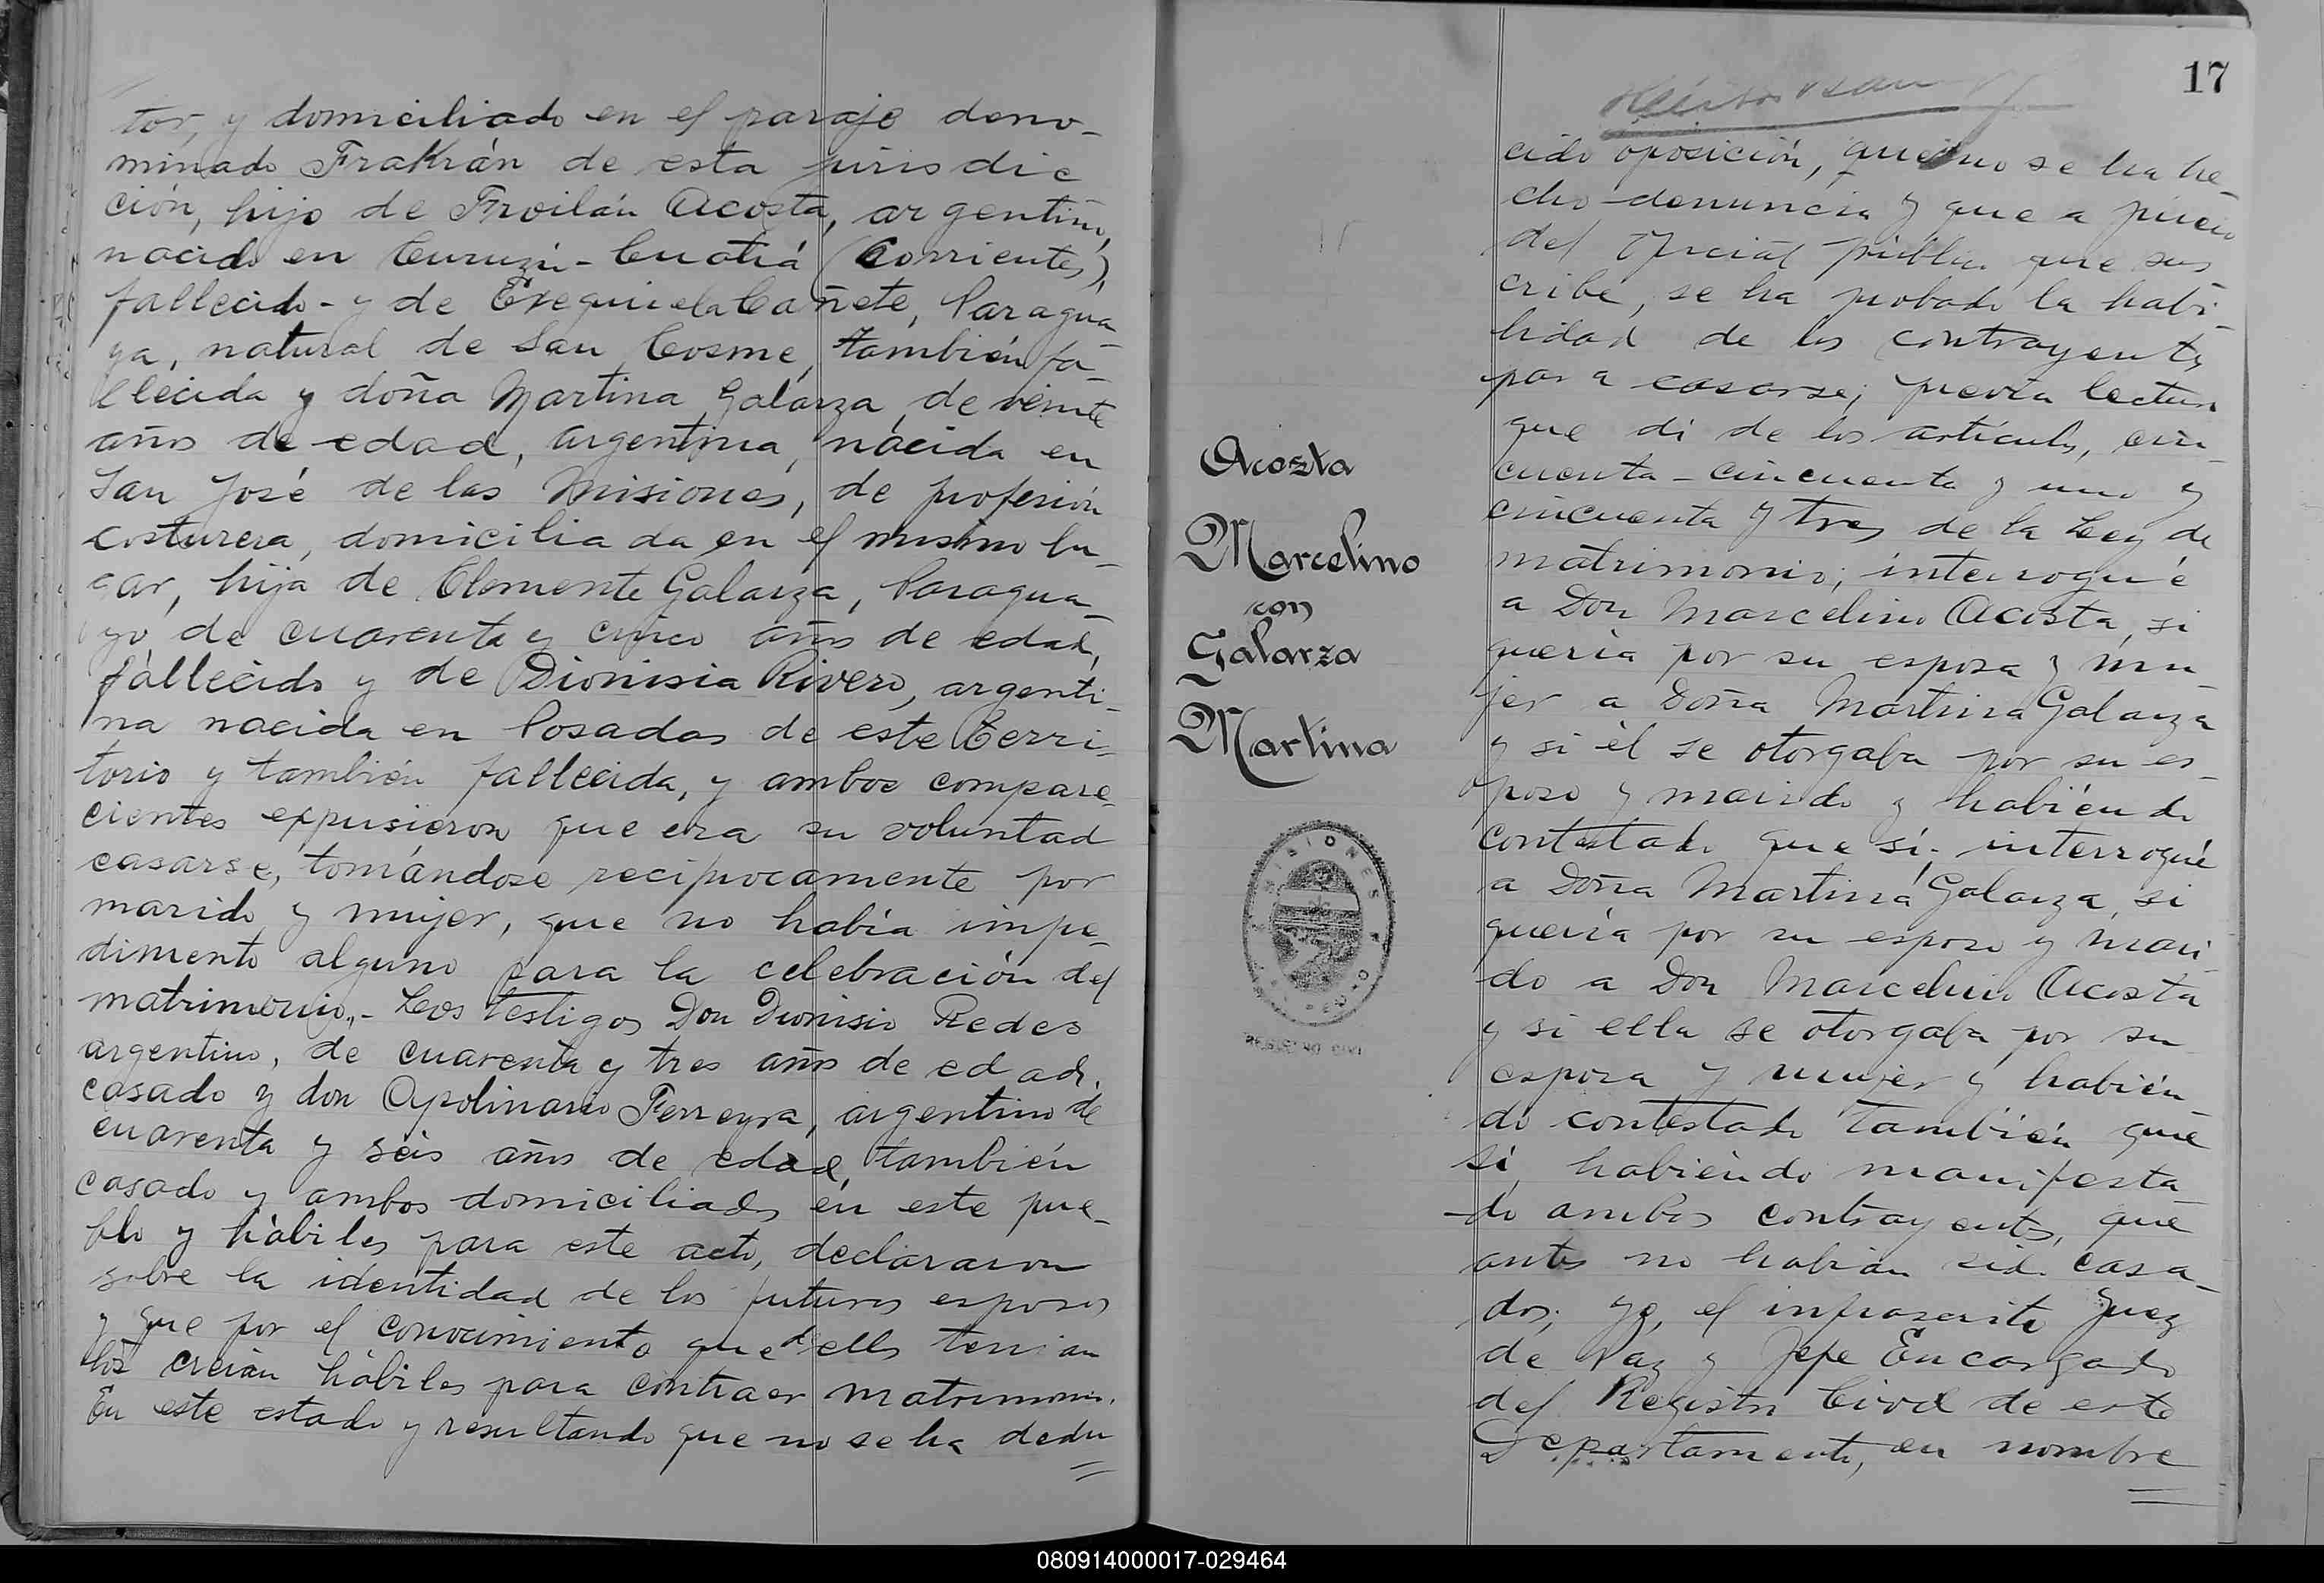 tor, y domiciliado en el paraje deno-
minado Frakrán de esta jurisdic
ción, hijo de Froilán Acosta, argentino,
nacido en Curuzú-Cuatiá (Corrientes),
fallecido - y de Exequiela Cañete, Paragua
ya, natural de San Cosme, también fa-
llecida y doña Martina Galarza, de veinte
años de edad, argentina, nacida en
San José de las Misiones, de profesión
costurera, domiciliada en el mismo lu-
gar, hija de Clemente Galarza, Paragua-
yo de cuarenta y cinco años de edad,
fallecido y de Dionisia Rivero, argenti-
na nacida en Posadas de este Terri-
torio y también fallecida, y ambos compare-
cientes expusieron que era su voluntad
casarse, tomándose recíprocamente por
marido y mujer, que no había impe-
dimento alguno para la celebración del
matrimonio.- Los testigos Don Dionisio Redes
argentino, de cuarenta y tres años de edad,
casado y don Apolinario Ferreyra, argentino de
cuarenta y seis años de edad, también
casado y ambos domiciliados en este pue-
blo y hábiles para este acto, declararon
sobre la identidad de los futuros esposos
y que por el conocimiento que de ellos tenian
los creian hábiles para contraer matrimonio.
En este estado y resultando que no se ha dedu
17
cido oposición, que no se ha he-
cho denuncia y que a juicio
del oficial público que sus
cribe, se ha probado la habi-
lidad de los contrayentes
para casarse; previa lectura
que di de los artículos, cin
cuenta - cincuenta y uno y
cincuenta y tres de la Ley de
matrimonio; interrogué
a Don Marcelino Acosta, si
quería por su esposa y mu-
jer a Doña Martina Galarza
y si él se otorgaba por su es-
poso y marido y habiendo
contestado que sí; interrogué
a Doña Martina Galarza, si
quería por su esposo y mari
do a Don Marcelino Acosta
y si ella se otorgaba por su
esposa y mujer y habien
do contestado también que
sí, habiendo manifesta
-do ambos contrayentes, que
antes no habían sido casa-
dos; yo, el infrascrito Juez
de Paz y Jefe Encargado
del Registro Civil de este
Departamento, en nombre
Acosta
Marcelino
con
Galarza
Martina
MISIONES
REGISTRO CIVIL
080914000017-029464